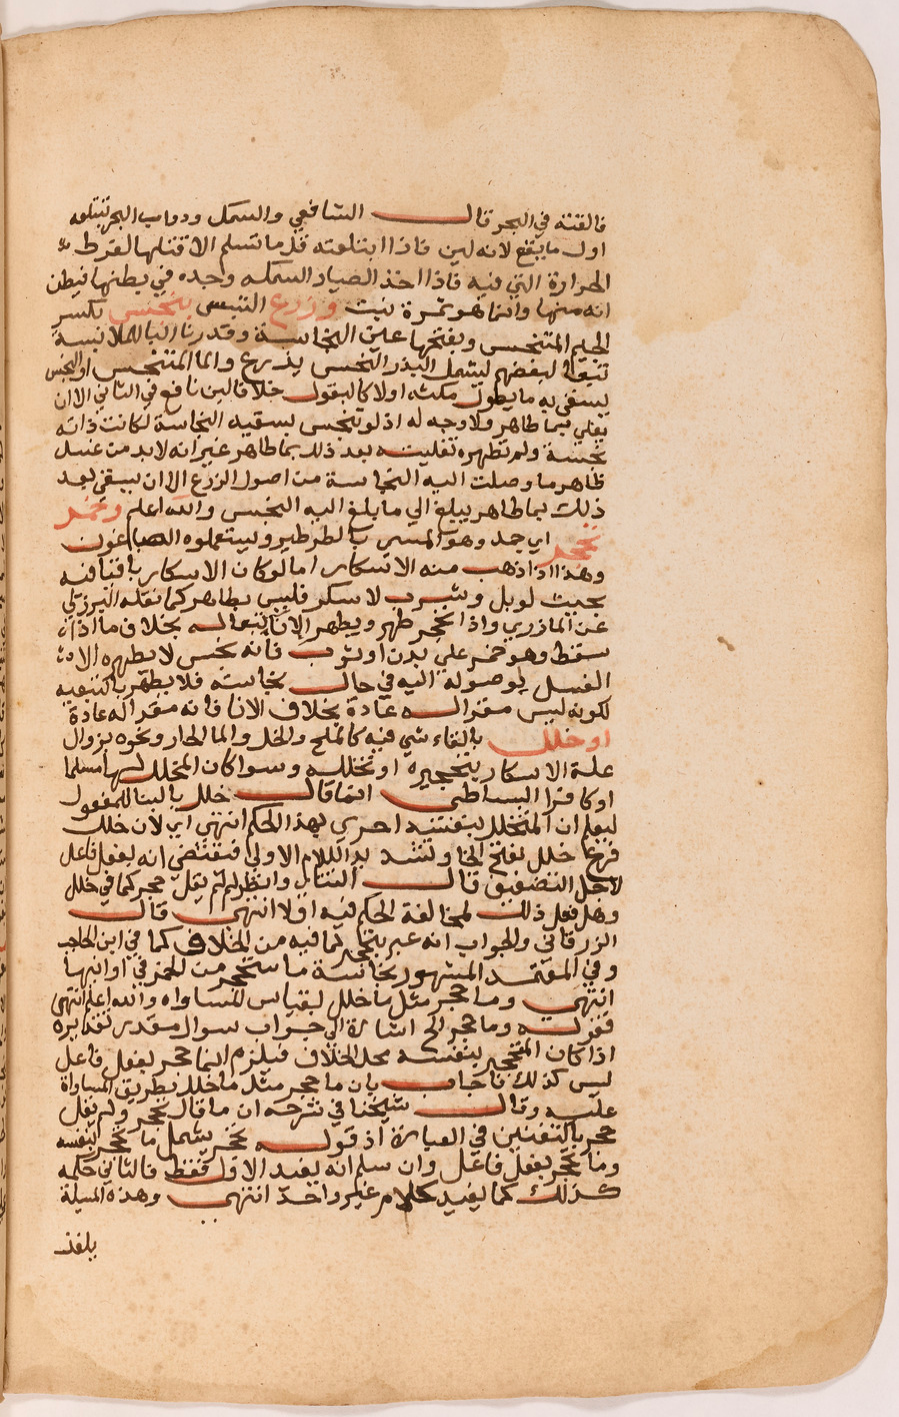 فالقته في البحر قال الشافعي والسمك ودواب البحر تبتلعه
اول ما يقع لانه لين فاذا ابتلعته قل ما تسلم الا قتلها لفرط
الحرارة التي فيه فاذا اخذ الصياد السمكه وجده في بطنها فيظن
انه منها وانما هو ثمرة نبت وزرع التبس بنجس بكسر
الجيم المتنجس وبفتحها عين النجاسة وقدرنا البا للملابسة
تبعا لبعضهم ليشمل البذر النجس يذرع والما المتنجس او النجس
يسقى به ما يطول مكثه اولا كالبقول خلافا لابن نافع في الثاني الا ان
يغلي بما طاهر ولا وجه له اذ لو تنجس بسقيه النجاسة لكانت ذاته
نجسة ولم تطهره تغليته بعد ذلك بما طاهر غير انه لابد من غسل
ظاهر ما وصلت اليه النجاسة من اصول الزرع الا ان يسقى بعد
ذلك بما طاهر يبلغ الى ما بلغ اليه النجس والله اعلم وخمر
تحجر اي جمد وهو المسمى بالطرطير ويستعملوه الصباغون
وهذا اذا ذهب منه الاسكار اما لو كان الاسكار باقيا فيه
بحيث لو بل وشرب لاسكر فليس بطاهر كما نقله البرزلي
عن المازري واذا تحجر طهر ويطهر الانا تبعا له بخلاف ما اذا
سقط وهو خمر على بدن او ثوب فانه نجس لا يطهره الا
الغسل لوصوله اليه في حال نجاسته فلا يطهر بالتبعيه
لكونه ليس مقرا له عادة بخلاف الانا فانه مقر له عادة
او خلل بالقاء شي فيه كالملح والخل والما الحار ونحوه بزوال
علة الاسكار بتحجيره او تخلله وسوا كان المخلل لها مسلما
او كافرا البساطي انما قال خلل بالبنا للمفعول
ليعلم ان المتخلل بنفسه احرى بهذا الحكم انتهى اي لان خلل
فرع خلل بفتح الخا وتشديد اللام الاولى فيقتضي انه بفعل فاعل
لاجل التضعيف قال التتاي وانظر لم لم يقل حجر كما في خلل
وهل فعل ذلك لمخالفة الحكم فيه اولا انتهى قال
الزرقاني والجواب انه عبر بتحجر لما فيه من الخلاف كما في ابن الحاجب
وفي المعتمد المشهور نجاسة ما يتحجر من الخمر في اوانيها
انتهى وما حجر مثل ما خلل بقياس المساواه والله اعلم انتهى
فقوله وما حجر الخ اشارة الى جواب سوال مقدر تقديره
اذا كان المتحجر بنفسه محل الخلاف فيلزم انما حجر بفعل فاعل
ليس كذلك فاجاب بان ما حجر مثل ما خلل بطريق المساواة
عليه وقال شيخنا في شرحه ان ما قال تحجر ولم يقل
حجر بالتفنين في العبارة اذ قوله تحجر يشمل ما تحجر بنفسه
وما تحجر بفعل فاعل وان سلم انه يفيد الاول فقط فالثاني حكمه
كذلك كما يفيد كلام غير واحد انتهى وهذه المسيلة